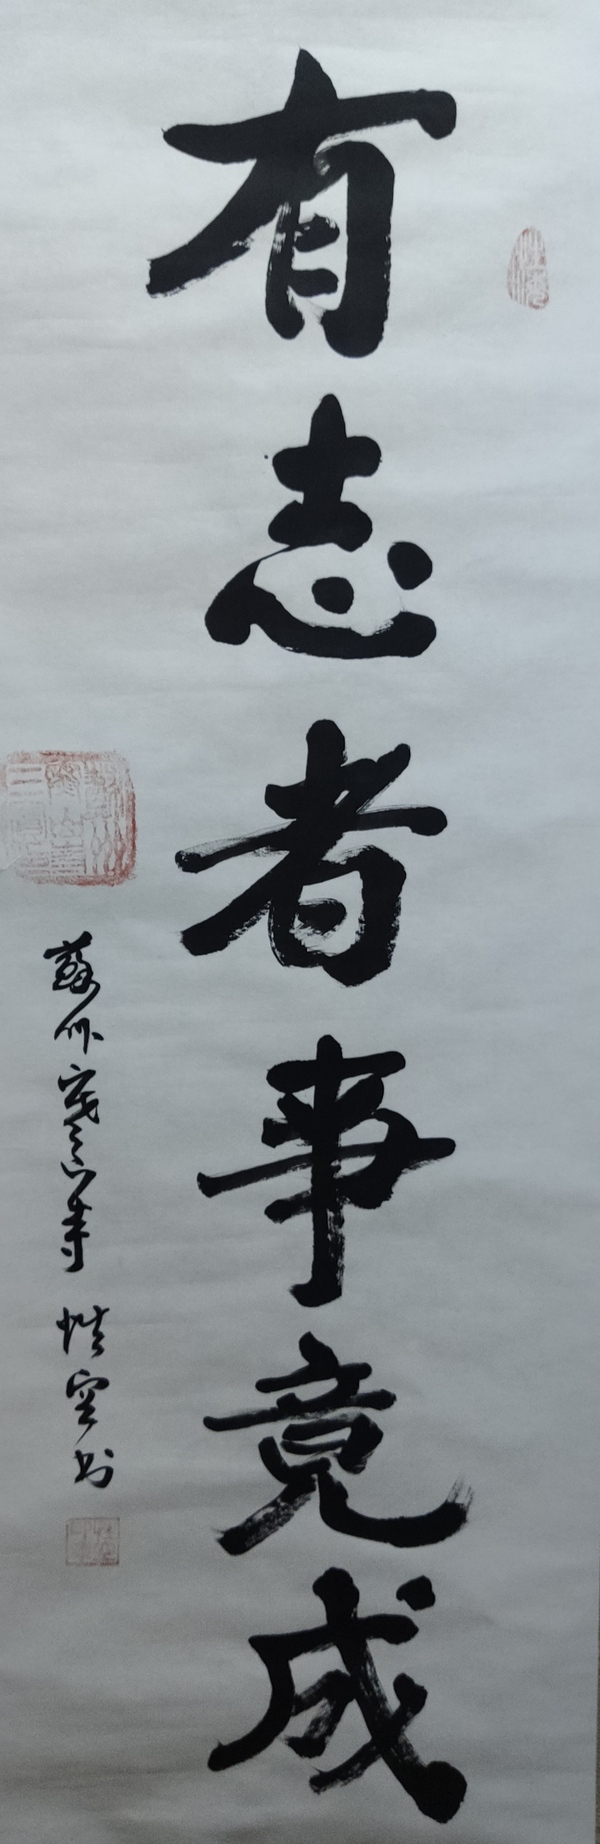 有志者事竟成
蘇州寒山寺 性空书